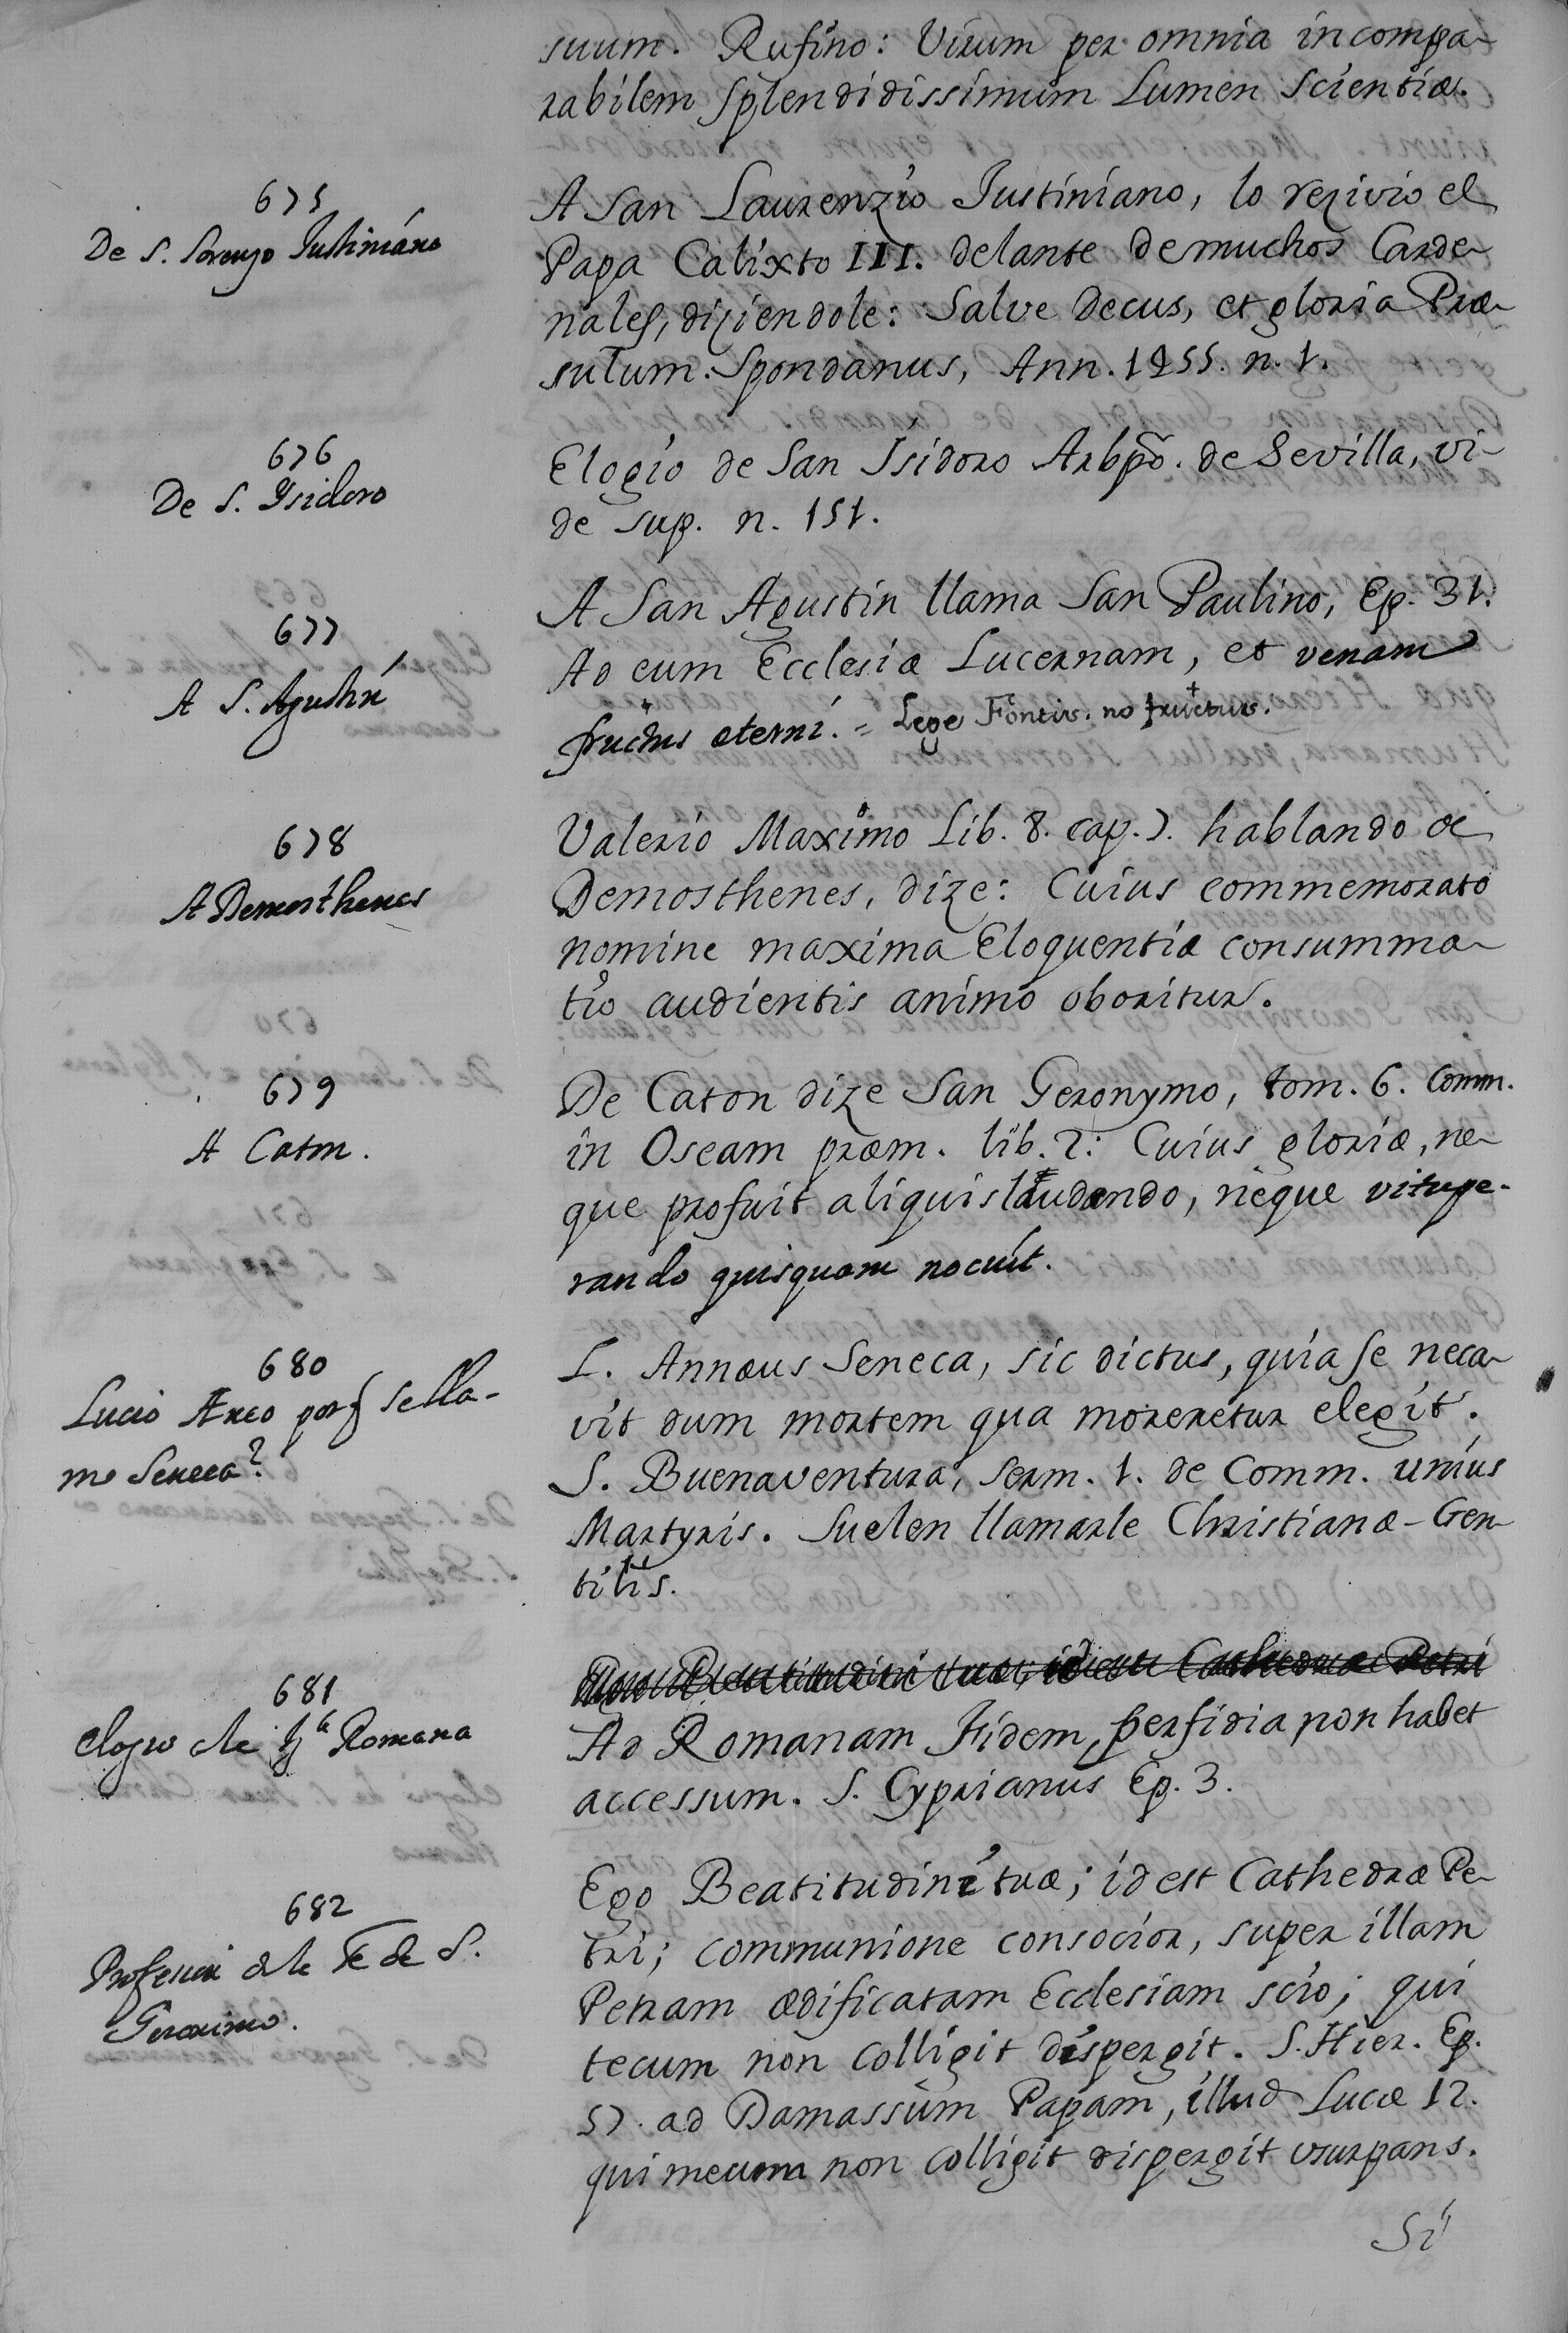 suum. Rufino: Virum per omnia incompa-
rabilem splendidissimum Lumen Scientiæ.
675
De S. Lorenzo Justiniano
A San Laurenzio Justiniano, lo rezivio el
Papa Calixto III. delante de muchos Carde-
nales, diziendole: Salve Decus, et gloria Præ-
sulum. Spondanus, Ann. 1455. n. 1.
676
De S. Ysidoro
Elogio de San Isidoro Arbpõ. de Sevilla, vi-
de sup. n. 151.
677
A S. Agustin
A San Agustin llama San Paulino, Ep. 31.
Ad eum Ecclesiæ Lucernam, et venam
fructus æterni. = Lege Fontis. no fructus.
678
A Demosthenes
Valerio Maximo Lib. 8. cap. 7. hablando de
Demosthenes, dize: Cuius commemorato
nomine maxima Eloquentiæ consumma-
tio audientis animo oboritur.
679
A Caton.
De Caton dize San Geronymo, tom. 6. Comm.
in Oseam præm. lib. 2: Cuius gloriæ, ne-
que profuit aliquis laudando, neque vitupe-
rando quisquam nocuit.
680
Lucio Aneo porq se lla-
mo Seneca?
L. Annæus Seneca, sic dictus, quia se neca-
vit dum mortem qua moreretur elegit.
S. Buenaventura, Serm. 1. de Comm. unius
Martyris. Suelen llamarle Christianæ-Gen-
tilis.
681
elogio de la Romana
Ad Romanam Fidem, perfidia non habet
accessum. S. Cyprianus Ep. 3.
682
Profesion de la Fe de S.
Geronimo.
Ego Beatitudini tuæ; id est Cathedræ Pe-
tri; communione consocior, super illam
Petram ædificatam Ecclesiam scio; qui
tecum non colligit dispergit. S. Hier. Ep.
57. ad Damassum Papam, illud Lucæ 12.
qui mecum non colligit dispergit usurpans.
Si